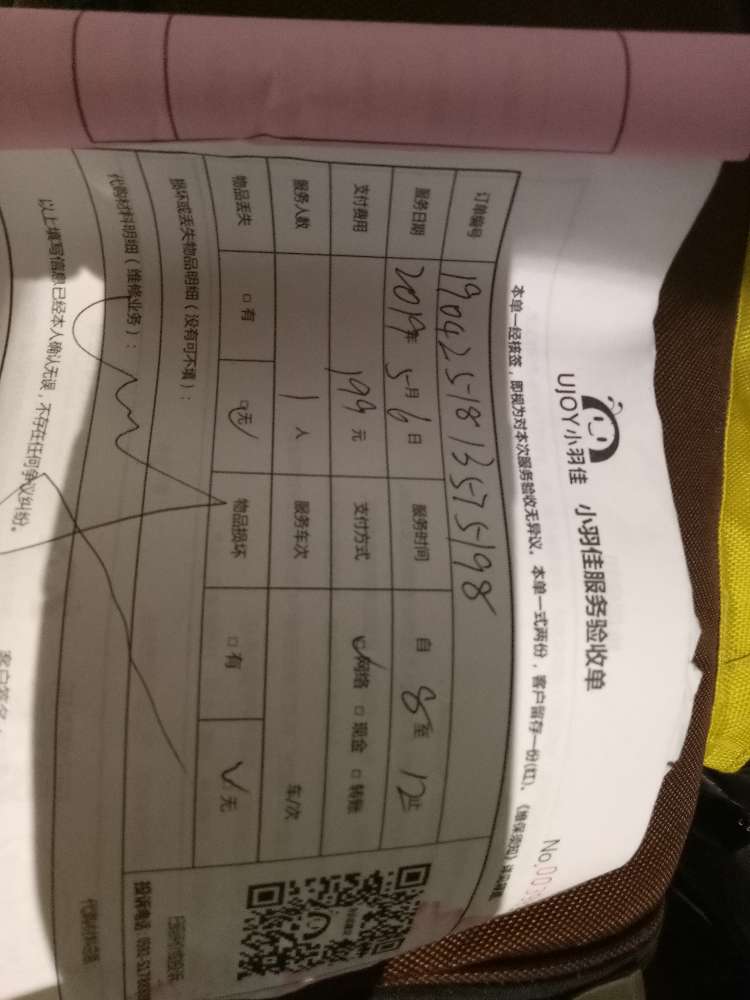 UJOY小羽佳 小羽佳服务验收单
No.00
本单一经核签，即视为对本次服务验收无异议。本单一式两份，客户留存一份(红)。《维保须知》
订单编号 1904251813575198
服务日期 2019年 5月 6日 服务时间 自 8 至 12止
支付费用 199 元 支付方式 ☑网络 □现金 □转账
服务人数 1 人 服务车次 车/次
物品丢失 □有 ☑无 物品损坏 □有 ☑无
损坏或丢失物品明细（没有可不填）：
代购材料明细（维修业务）：
投诉电话：0592-517
以上填写信息已经本人确认无误，不存在任何争议纠纷。
客户签名：